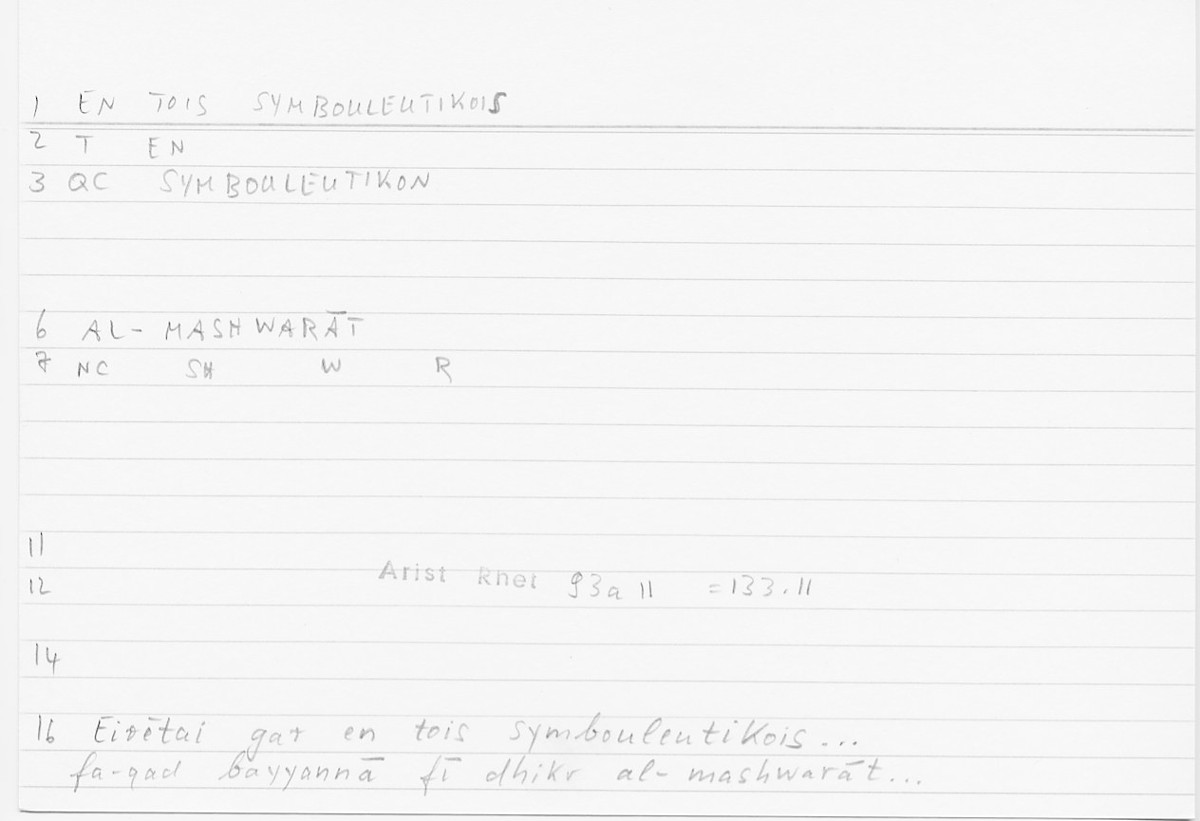 1 EN TOIS SYMBOULEUTIKOIS
2 T EN
3 QC SYMBOULEUTIKON
6 AL-MASHWARĀT
7 NC SH W R
11
12 Arist Rhet 93a 11 =133.11
14
16 Eirētai gar en tois symbouleutikois...
fa-qad bayyannā fī dhikr al-mashwarāt...